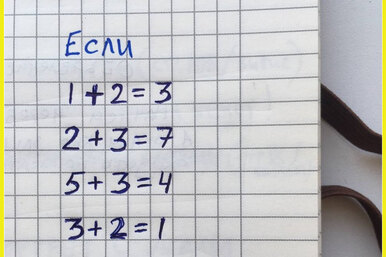 Если
1+2=3
2+3=7
5+3=4
3+2=1